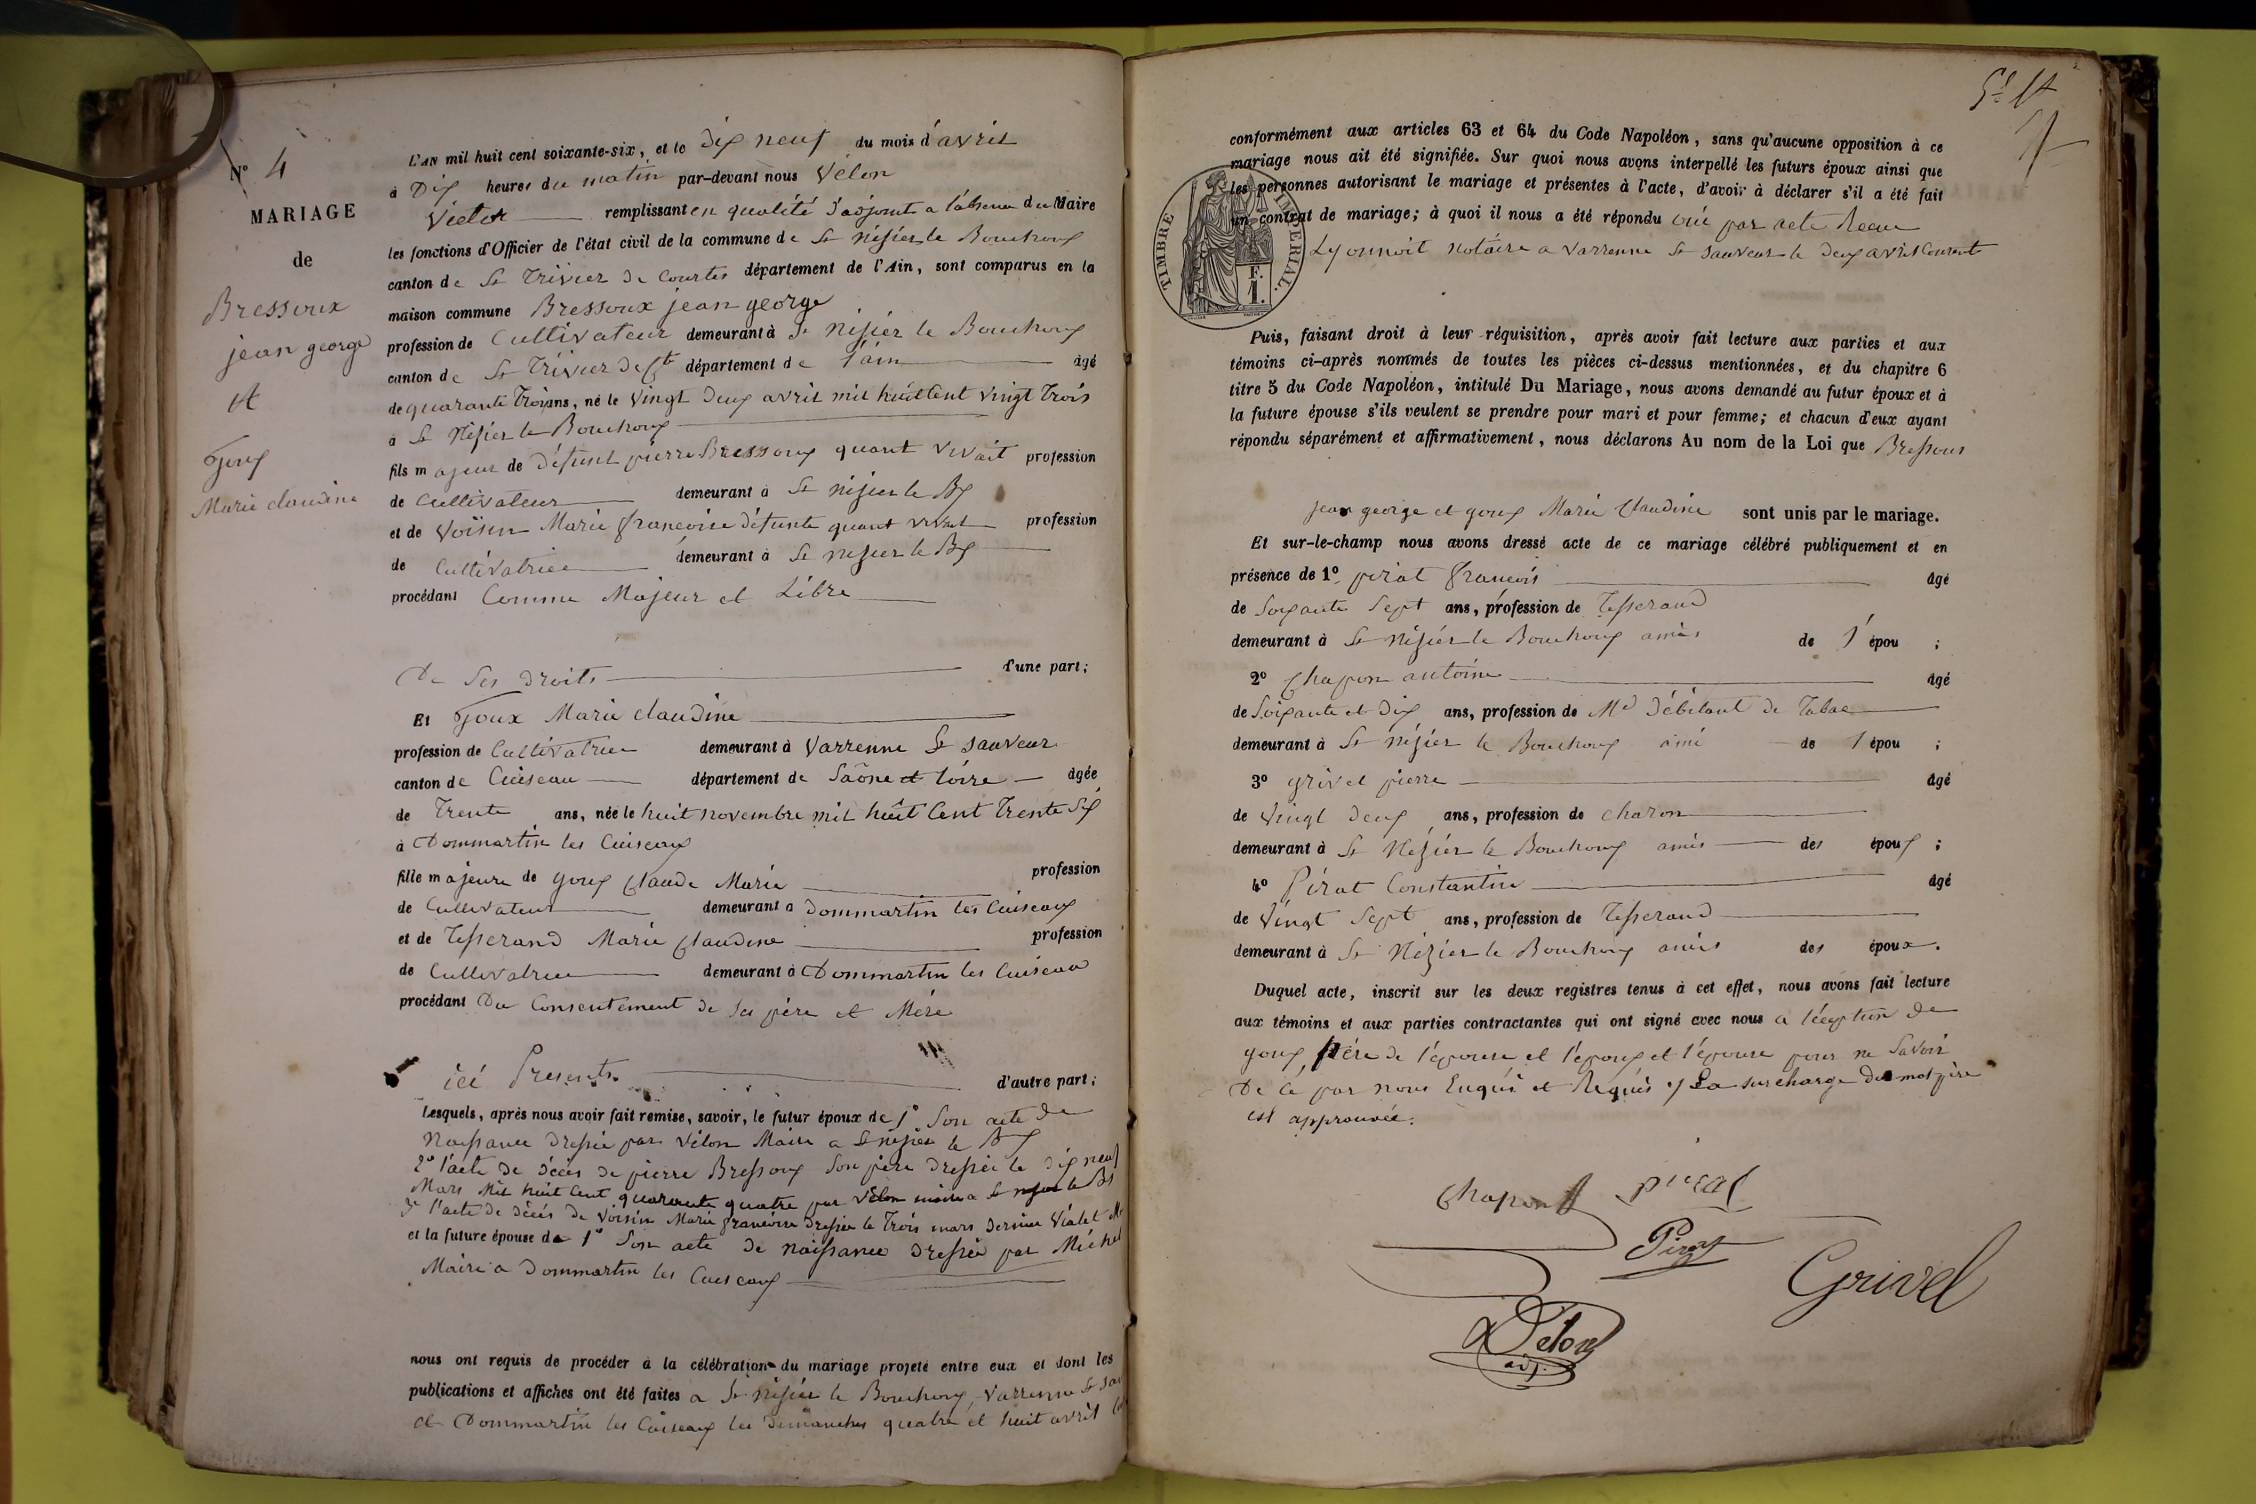 N° 4
MARIAGE
de
Bressoux
jean george
et
Goux
Marie claudine
L'AN mil huit cent soixante-six, et le Dix neuf du mois d'avril
à Dix heures du matin par-devant nous Vélon
Victor remplissant en qualité d'adjoint a l'absence du Maire
les fonctions d'Officier de l'état civil de la commune de St nisier le Bouchoux
canton de St Trivier de Courtes département de l'Ain, sont comparus en la
maison commune Bressoux jean george
profession de Cultivateur demeurant à St nisier le Bouchoux
canton de St Trivier de Ct département de l'ain âgé
de quarante Trois ans, né le vingt deux avril mil huit Cent vingt trois
à St Nisier le Bouchoux
fils majeur de défunt pierre Bressoux quant vivait profession
de Cultivateur demeurant à St nisier le Bx
et de Voisin Marie françoise défunte quant vivait profession
de Cultivatrice demeurant à St nisier le Bx
procédant Comme Majeur et Libre
De Ses droits d'une part;
Et Goux Marie claudine
profession de Cultivatrice demeurant à Varrenne St sauveur
canton de Cuiseau département de Saône et loire âgée
de Trente ans, née le huit novembre mil huit Cent Trente Six
à Dommartin les Cuiseaux
fille majeure de goux Claude Marie profession
de Cultivateur demeurant a dommartin les Cuiseaux
et de Tisserand Marie Claudine profession
de Cultivatrice demeurant à Dommartin les Cuiseau
procédant Du Consentement de Ses père et Mére
ici Presents d'autre part;
Lesquels, après nous avoir fait remise, savoir, le futur époux de 1° Son acte de
Naissance dressée par Vélon Maire a St nisier le Bx
2° l'acte de décès de pierre Bressoux Son père dressée le dix neuf
Mars Mil huit Cent quarante quatre par Vélon maire a St nisier le Bx
3° l'acte de décès de Voisin Marie françoise dressée le Trois mars dernier Vialet
et la future épouse de 1° Son acte de naissance dressée par Michel
Maire a Dommartin les Cuiseaux
nous ont requis de procéder à la célébration du mariage projeté entre eux et dont les
publications et affiches ont été faites a St nisier le Bouchoux, Varrenne St
et Dommartin les Cuiseaux les dimanches quatre et huit avril
conformément aux articles 63 et 64 du Code Napoléon, sans qu'aucune opposition à ce
mariage nous ait été signifiée. Sur quoi nous avons interpellé les futurs époux ainsi que
les personnes autorisant le mariage et présentes à l'acte, d'avoir à déclarer s'il a été fait
un contrat de mariage; à quoi il nous a été répondu oui par acte Recu
Lyonnoit notaire a Varrenne St Sauveur le deux avril Courent
TIMBRE IMPERIAL.
F.
1.
Puis, faisant droit à leur réquisition, après avoir fait lecture aux parties et aux
témoins ci-après nommés de toutes les pièces ci-dessus mentionnées, et du chapitre 6
titre 5 du Code Napoléon, intitulé Du Mariage, nous avons demandé au futur époux et à
la future épouse s'ils veulent se prendre pour mari et pour femme; et chacun d'eux ayant
répondu séparément et affirmativement, nous déclarons Au nom de la Loi que Bressoux
jean george et goux Marie Claudine sont unis par le mariage.
Et sur-le-champ nous avons dressé acte de ce mariage célébré publiquement et en
présence de 1° pirat francois âgé
de Soixante Sept ans, profession de Tisserand
demeurant à St nisier le Bouchoux amis de l'épou ;
2° Chapon antoine âgé
de Soixante et dix ans, profession de Md Débitant de Tabac
demeurant à St nisier le Bouchoux ami de l épou ;
3° grivel pierre âgé
de Vingt deux ans, profession de charon
demeurant à St Nizier le Bouchoux amis des époux ;
4° Pirat Constantin âgé
de Vingt Sept ans, profession de Tisserand
demeurant à St Nizier le Bouchoux amis des époux.
Duquel acte, inscrit sur les deux registres tenus à cet effet, nous avons fait lecture
aux témoins et aux parties contractantes qui ont signé avec nous a l'éception de
goux, père de l'épouse et l'époux et l'épouse pour ne Savoir
De ce par nous Enquis et Requis / La surcharge du mot père
est approuvée.
Chapon
Pirat
Grivel
Velon
adj.